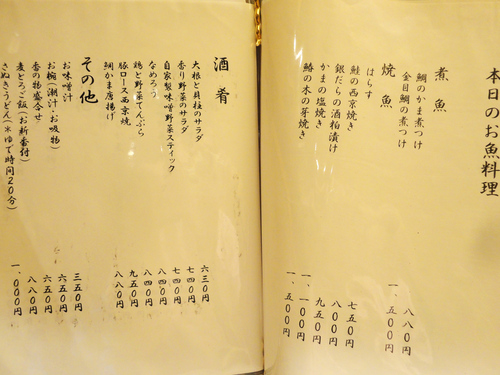 本日のお魚料理
煮魚
鯛のかま煮つけ 八八〇円
金目鯛の煮つけ 一、五〇〇円
焼魚
はらす 七五〇円
鮭の西京焼き 八〇〇円
銀だらの酒粕漬け 九五〇円
かまの塩焼き 一、一〇〇円
鰆の木の芽焼き 一、五〇〇円
酒肴
大根と貝柱のサラダ 六三〇円
香り野菜のサラダ 七四〇円
自家製味噌野菜スティック 七四〇円
なめろう 八四〇円
鶏と野菜てんぷら 八四〇円
豚ロース西京焼 九五〇円
鯛かま唐揚げ 八八〇円
その他
お味噌汁 三五〇円
お椀(潮汁・お吸物) 六五〇円
香の物盛合せ 六五〇円
麦とろご飯(お新香付) 八八〇円
さぬきうどん(水ゆで時間20分) 一、〇〇〇円